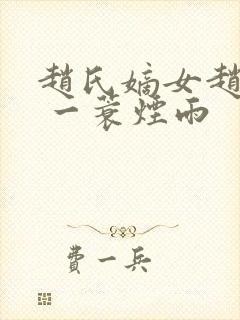 趙氏嫡女趙
一蓑煙雨
費一兵